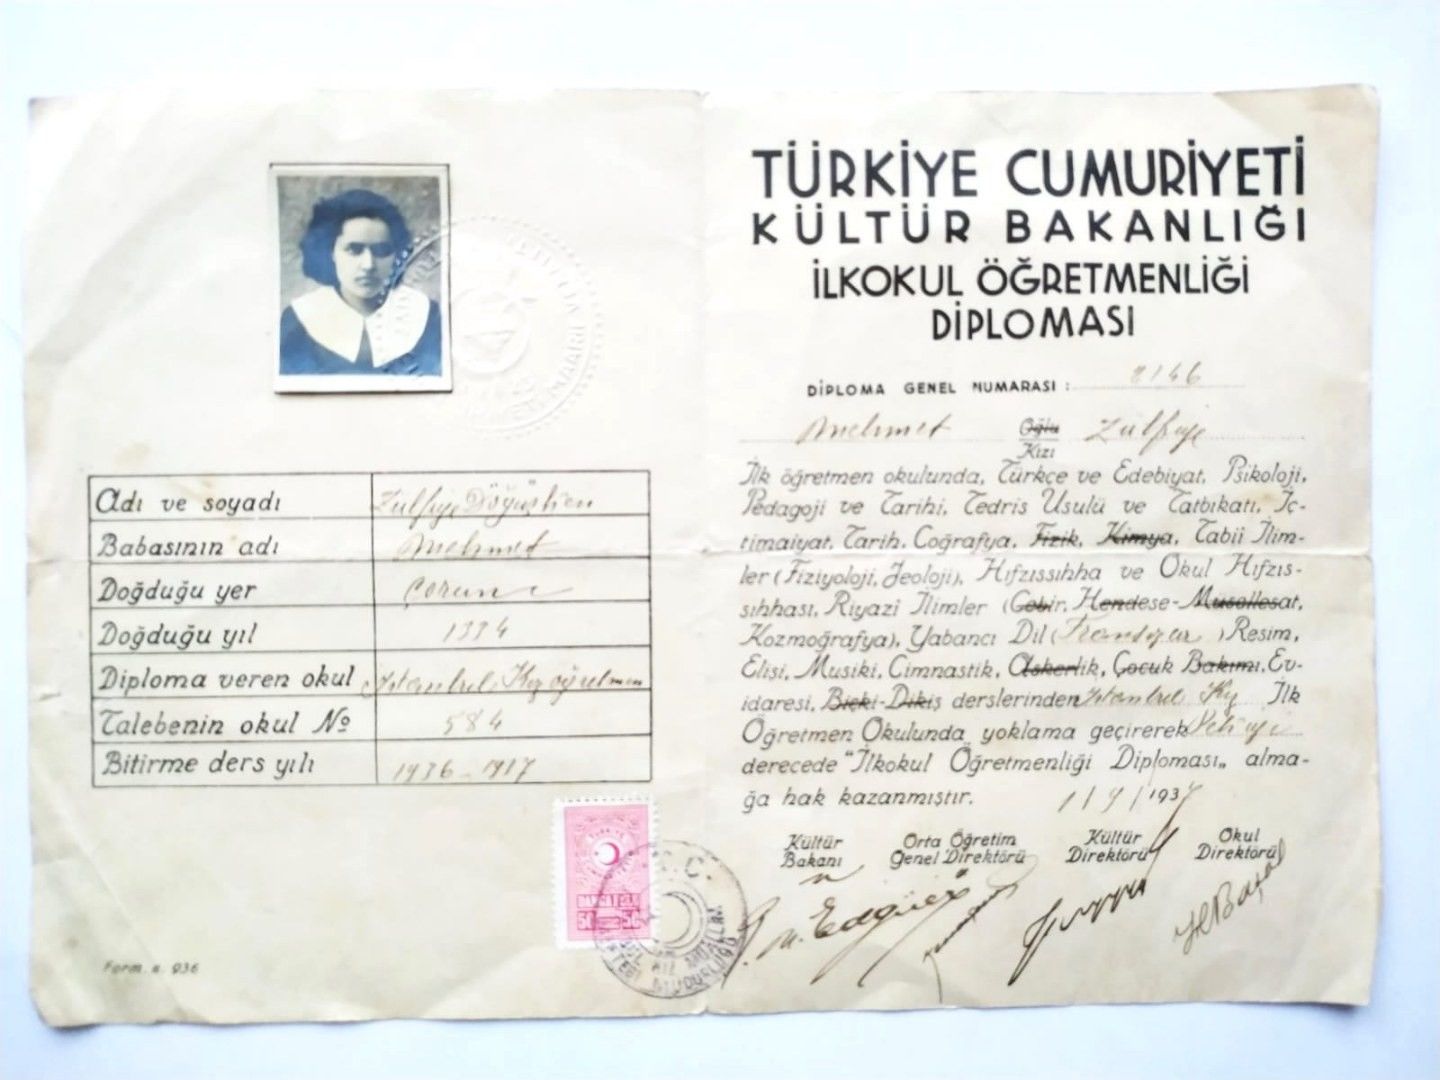 Adı ve soyadı Zülfiye Döğüşken
Babasının adı Mehmet
Doğduğu yer Çorum
Doğduğu yıl 1334
Diploma veren okul İstanbul Kız öğretmen
Talebenin okul No 584
Bitirme ders yılı 1936-1937
DAMGA PULU
50 50
T.C.
Form. n. 936
TÜRKİYE CUMURİYETİ
KÜLTÜR BAKANLIĞI
İLKOKUL ÖĞRETMENLİĞİ
DİPLOMASI
DİPLOMA GENEL NUMARASI : 2146
Mehmet Oğlu Zülfiye
Kızı
İlk öğretmen okulunda, Türkçe ve Edebiyat, Psikoloji,
Pedagoji ve Tarihi, Tedris Usulü ve Tatbikatı, İç-
timaiyat, Tarih, Coğrafya, Fizik, Kimya, Tabii İlim-
ler (Fiziyoloji, Jeoloji), Hıfzıssıhha ve Okul Hıfzıs-
sıhhası, Riyazî İlimler (Cebir, Hendese-Musellesat,
Kozmoğrafya), Yabancı Dil (Fransızca) Resim,
Elişi, Musiki, Cimnastik, Askerlik, Çocuk Bakımı, Ev-
idaresi, Biçki-Dikiş derslerinden İstanbul Kız İlk
Öğretmen Okulunda yoklama geçirerek Pekiyi
derecede "İlkokul Öğretmenliği Diploması„ alma-
ğa hak kazanmıştır. 1/9/1937
Kültür Orta Öğretim Kültür Okul
Bakanı Genel Direktörü Direktörü Direktörü